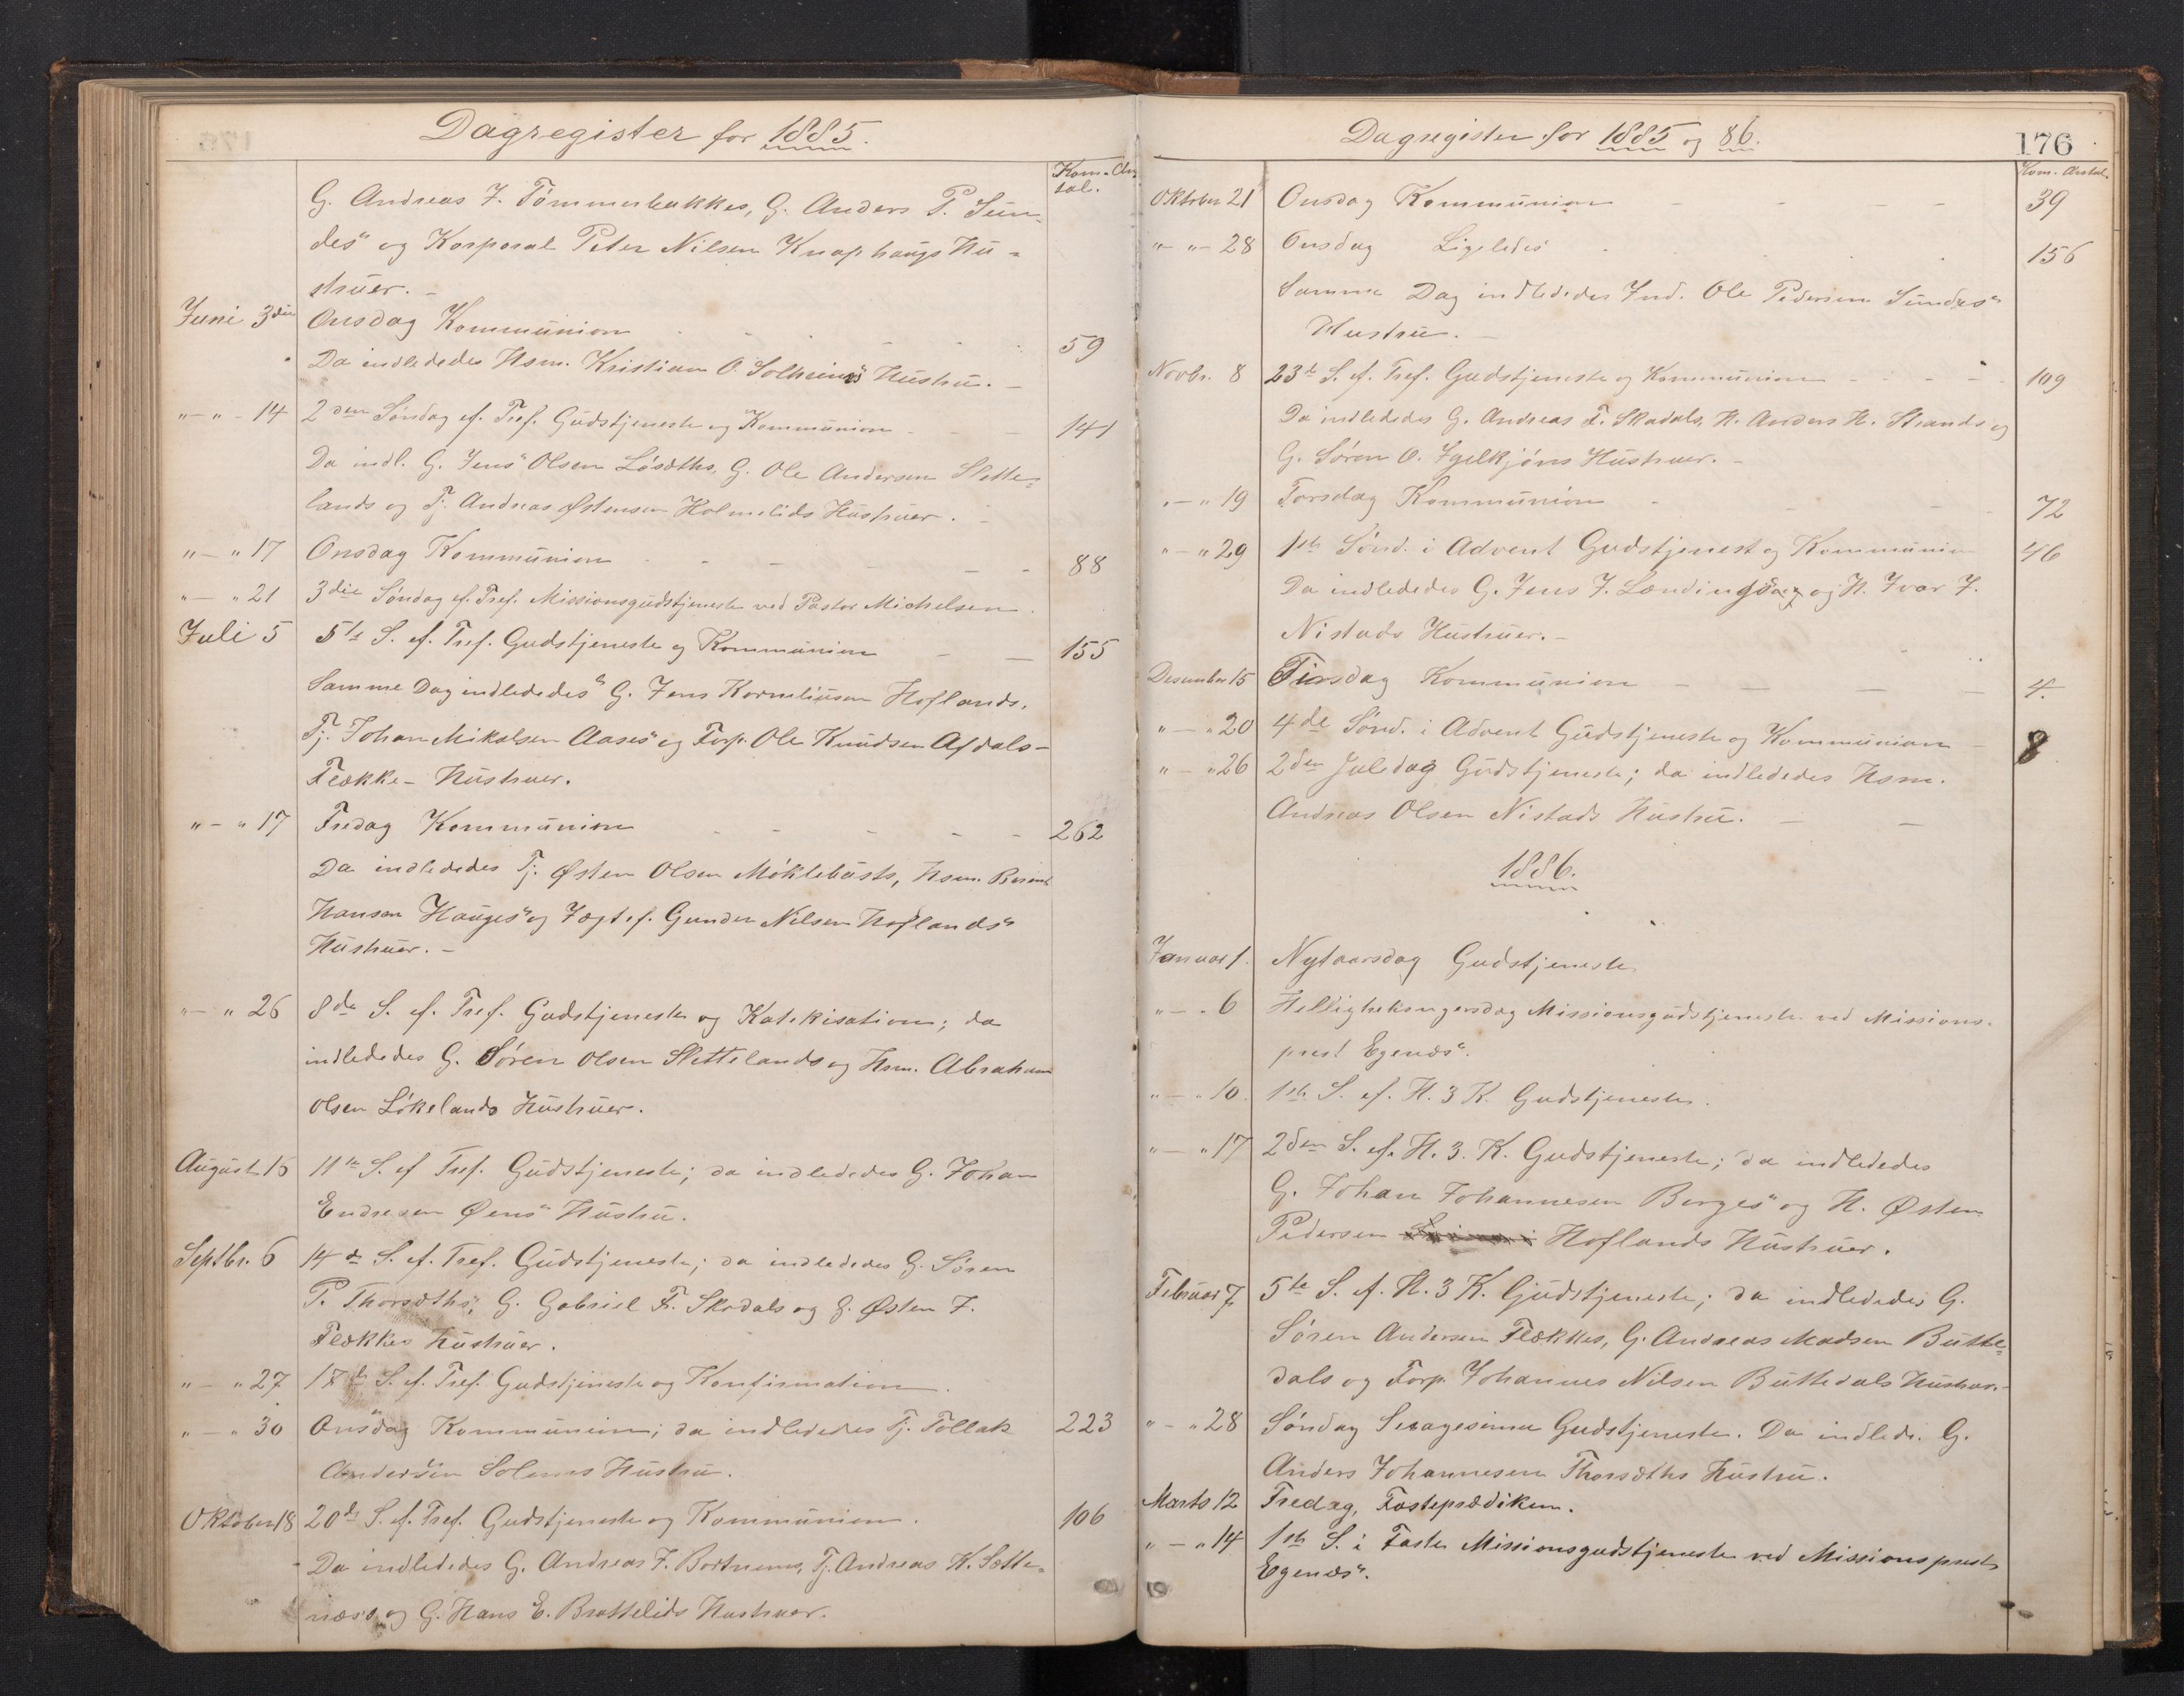 Dagregister for 1885.
Kom. An
tal.
G. Andreas J. Tömmerbakkes, G. Anders P. Sun-
des" og Korporal Peter Nilsen Knaphaugs Hu-
struer. -
Juni 3die Onsdag Kommunion 59
Da indlededes Hsm. Kristian O. Solheims Hustru. -
" - " - 14 2den Söndag ef. Tref. Gudstjeneste og Kommunion 141
Da indl. G. Jens Olsen Lösæths, G. Ole Andersen Slette-
lands og Tj. Andreas Østensen Holmelids Hustruer.
" - " 17 Onsdag Kommunion 88
" - " 21 3die Söndag ef. Tref. Missionsgudstjeneste ved Pastor Michelsen.
Juli 5 5te S. ef. Tref. Gudstjeneste og Kommunion 155
Samme Dag indlededes G. Jens Korneliusen Hoflands,
Tj. Johan Mikalsen Aases" og Forp. Ole Knudsen Afdals-
Flække- Hustruer.
" - " 17 Fredag Kommunion 262
Da indlededes Tj. Østen Olsen Möklebusts, Hsm. Berent
Hansen Hauges" og Jægt ef. Gunder Nilsen Hoflands"
Hustruer. -
" - " 26 8de S. ef. Tref. Gudstjeneste og Katekisation; da
indlededes G. Sören Olsen Slettelands og Hsm. Abraham
Olsen Lökelands Hustruer.
August 15 11te S. ef Tref. Gudstjeneste; da indlededes G. Johan
Endresen Øens" Hustru.
Septbr. 6 14de S. ef. Tref. Gudstjeneste; da indlededes G. Sören
P. Thorsæths", G. Gabriel F. Skodals og G. Østen J.
Flækkes Hustruer.
" - " 27 17de S. ef. Tref. Gudstjeneste og Konfirmation.
" - " 30 Onsdag Kommunion; da indlededes Tj. Tollak 223
Andersen Solems Hustru.
Oktober 18 20de S. ef. Tref. Gudstjeneste og Kommunion. 106
Da indlededes G. Andreas J. Bortnems, Tj. Andreas H. Sætte-
næs's og G. Hans E. Brattelids Hustruer.
Dagregister for 1885 og 86. 176
Kom. Antal.
Oktober 21 Onsdag Kommunion 39
" - " - 28 Onsdag Ligeledes 156
Samme Dag indlededes Ind. Ole Pedersen Sundes"
Hustru. -
Novbr. 8 23de S. ef. Tref. Gudstjeneste og Kommunion 109
Da indlededes G. Andreas F. Skodals, H. Anders H. Strands og
G. Sören O. Igelkjöns Hustruer. -
" - " 19 Torsdag Kommunion 72
" - " 29 1ste Sönd. i Advent Gudstjenest og Kommunion 46
Da indlededes G. Jens J. og H. Ivar J.
Nistads Hustruer. -
Desember 15 Tirsdag Kommunion 4.
" - " 20 4de Sönd. i Advent Gudstjeneste og Kommunion 8
" - " 26 2den Juledag Gudstjeneste; da indlededes Hsm.
Andreas Olsen Nistads Hustru. -
1886.
Januar 1. Nytaarsdag Gudstjeneste
" - " 6 Helligtrekongersdag Missionsgudstjeneste ved Missions-
prest Egenæs".
" - " 10. 1ste S. ef. H. 3 K. Gudstjeneste.
" - " 17 2den S. ef. H. 3. K. Gudstjeneste; da indlededes
G. Johan Johannesen Berges" og H. Østen
Pedersen Hoflands Hustruer.
Februar 7 5te S. ef. H. 3 K. Gudstjeneste; da indlededes G.
Sören Andersen Flækkes, G. Andreas Madsen Butte-
dals og Forp. Johannes Nilsen Buttedals Hustruer. -
" - " 28 Söndag Sexagesima Gudstjeneste. Da indlede. G.
Anders Johannesen Thorsæths Hustru.
Marts 12 Fredag, Fasteprædiken.
" - " 14 1ste S. i Faste Missionsgudstjeneste ved Missionsprest
Egenæs".